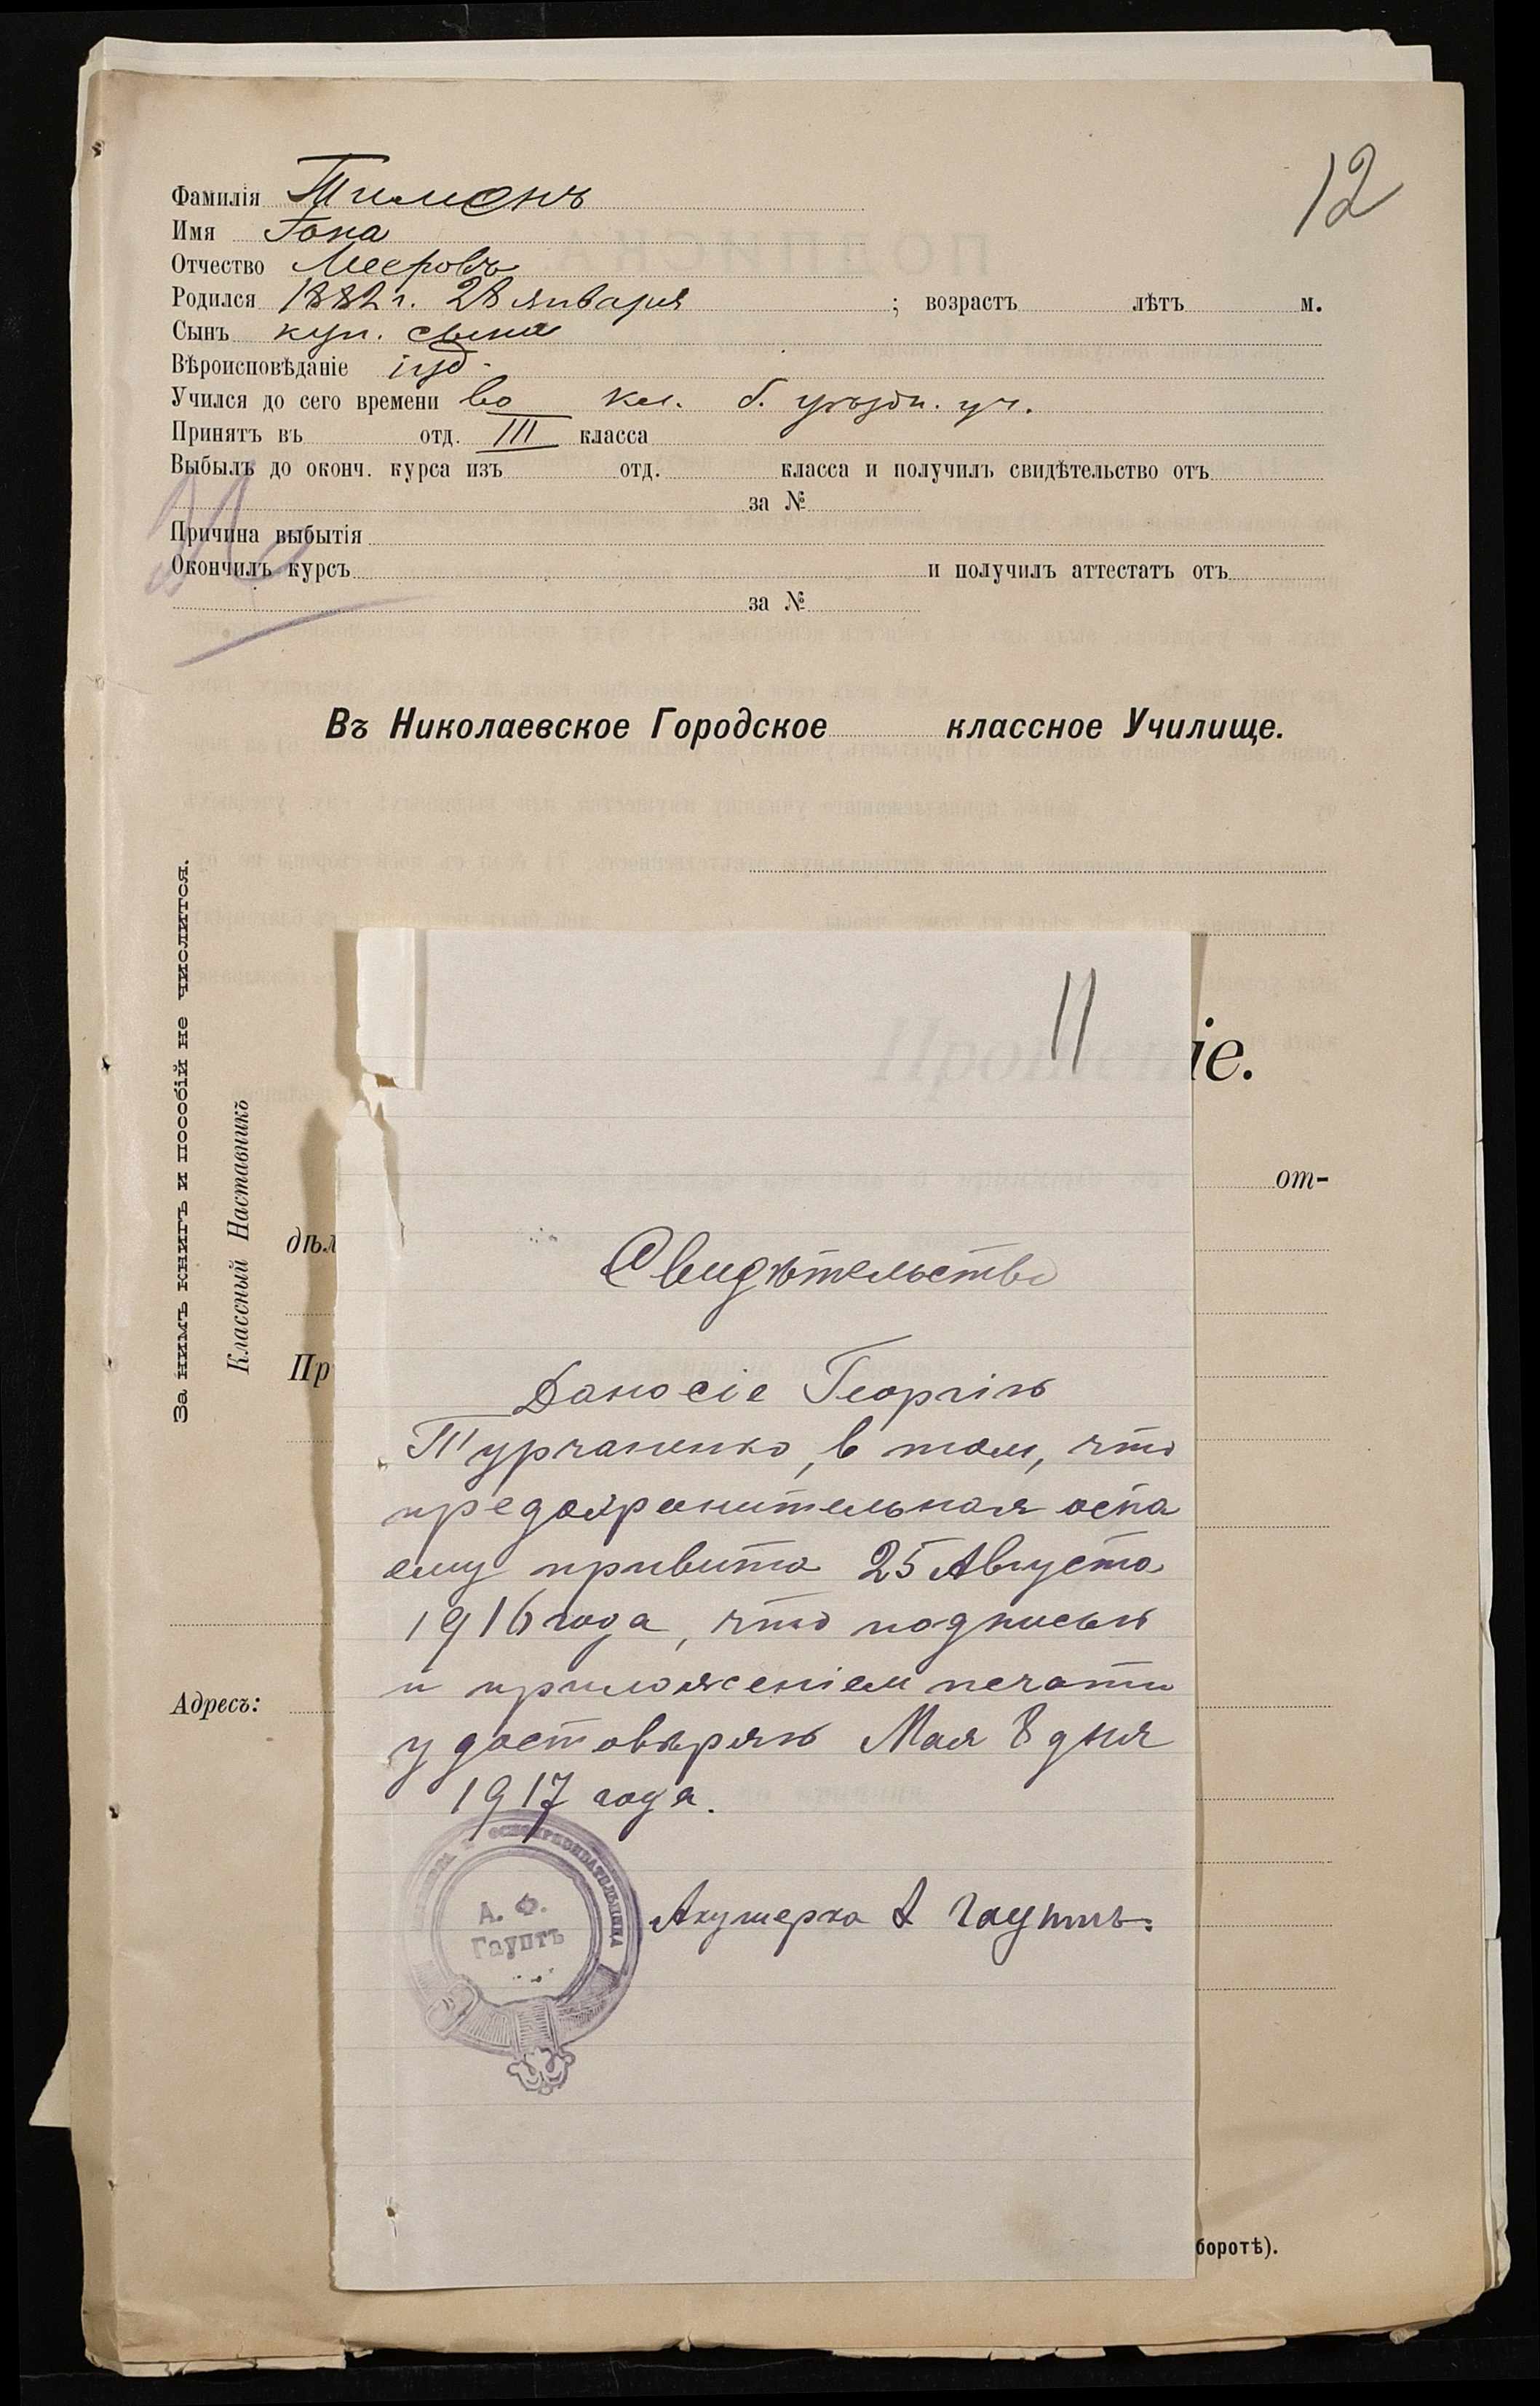 12
Фамилія Тименъ
Имя Гона
Отчество Мееровъ
Родился 1882 г. 28 января ; возрастъ лѣтъ м.
Сынъ куп. сына
Вѣроисповѣданіе іуд.
Учился до сего времени во кл. б. уѣздн. уч.
Принятъ въ отд. III класса
Выбылъ до оконч. курса изъ отд. класса и получилъ свидѣтельство отъ
за №
Причина выбытія
Окончилъ курсъ и получилъ аттестатъ отъ
за №
Въ Николаевское Городское классное Училище.
За нимъ книгъ и пособій не числится.
Классный Наставникъ
іе.
от-
дѣл
Пр
Адресъ:
боротѣ).
11
Свидѣтельство
Дано сіе Георгію
Турчаненко, в том, что
предохранительная оспа
ему привита 25 Августа
1916 года, что подписью
и приложеніем печати
удостовѣряю Мая 8 дня
1917 года.
А. Ф.
Гауптъ
Акушерка А Гауптъ.